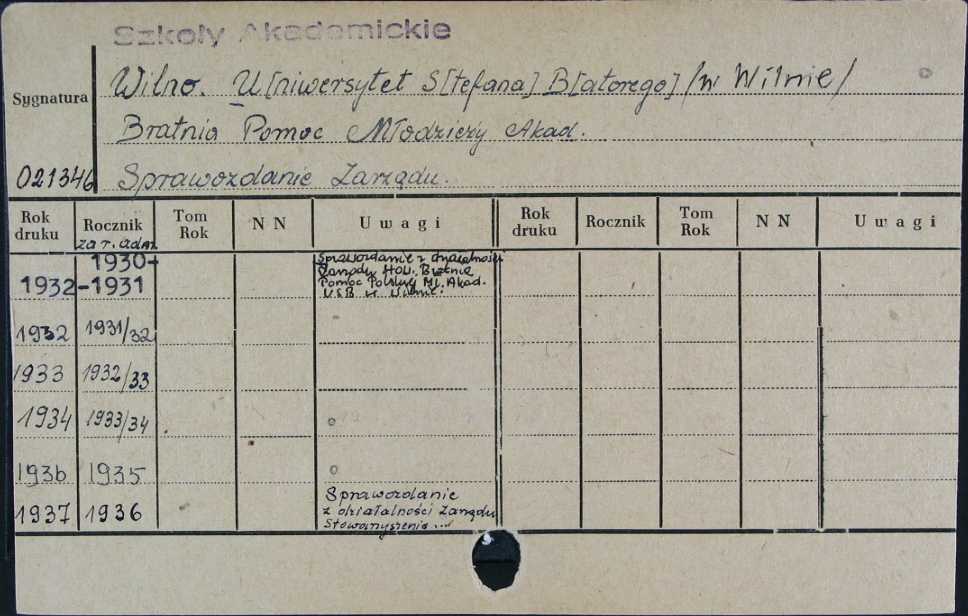 Szkoły Akademickie
Wilno. U[niwersytet S[tefana] B[atorego] /w Wilnie/
Sygnatura
Bratnia Pomoc Młodzieży Akad.
021346 Sprawozdanie Zarządu.
Rok druku Rocznik Tom Rok N N Uwagi Rok druku Rocznik Tom Rok N N Uwagi
za r. adm.
1932 1930-1931 Sprawozdanie z działalności
Zarządu Stow. Bratnia
Pomoc Polskiej Mł. Akad.
USB w Wilnie.
1932 1931/32
1933 1932/33
1934 1933/34
1936 1935
1937 1936 Sprawozdanie
z działalności Zarządu
Stowarzyszenia ...